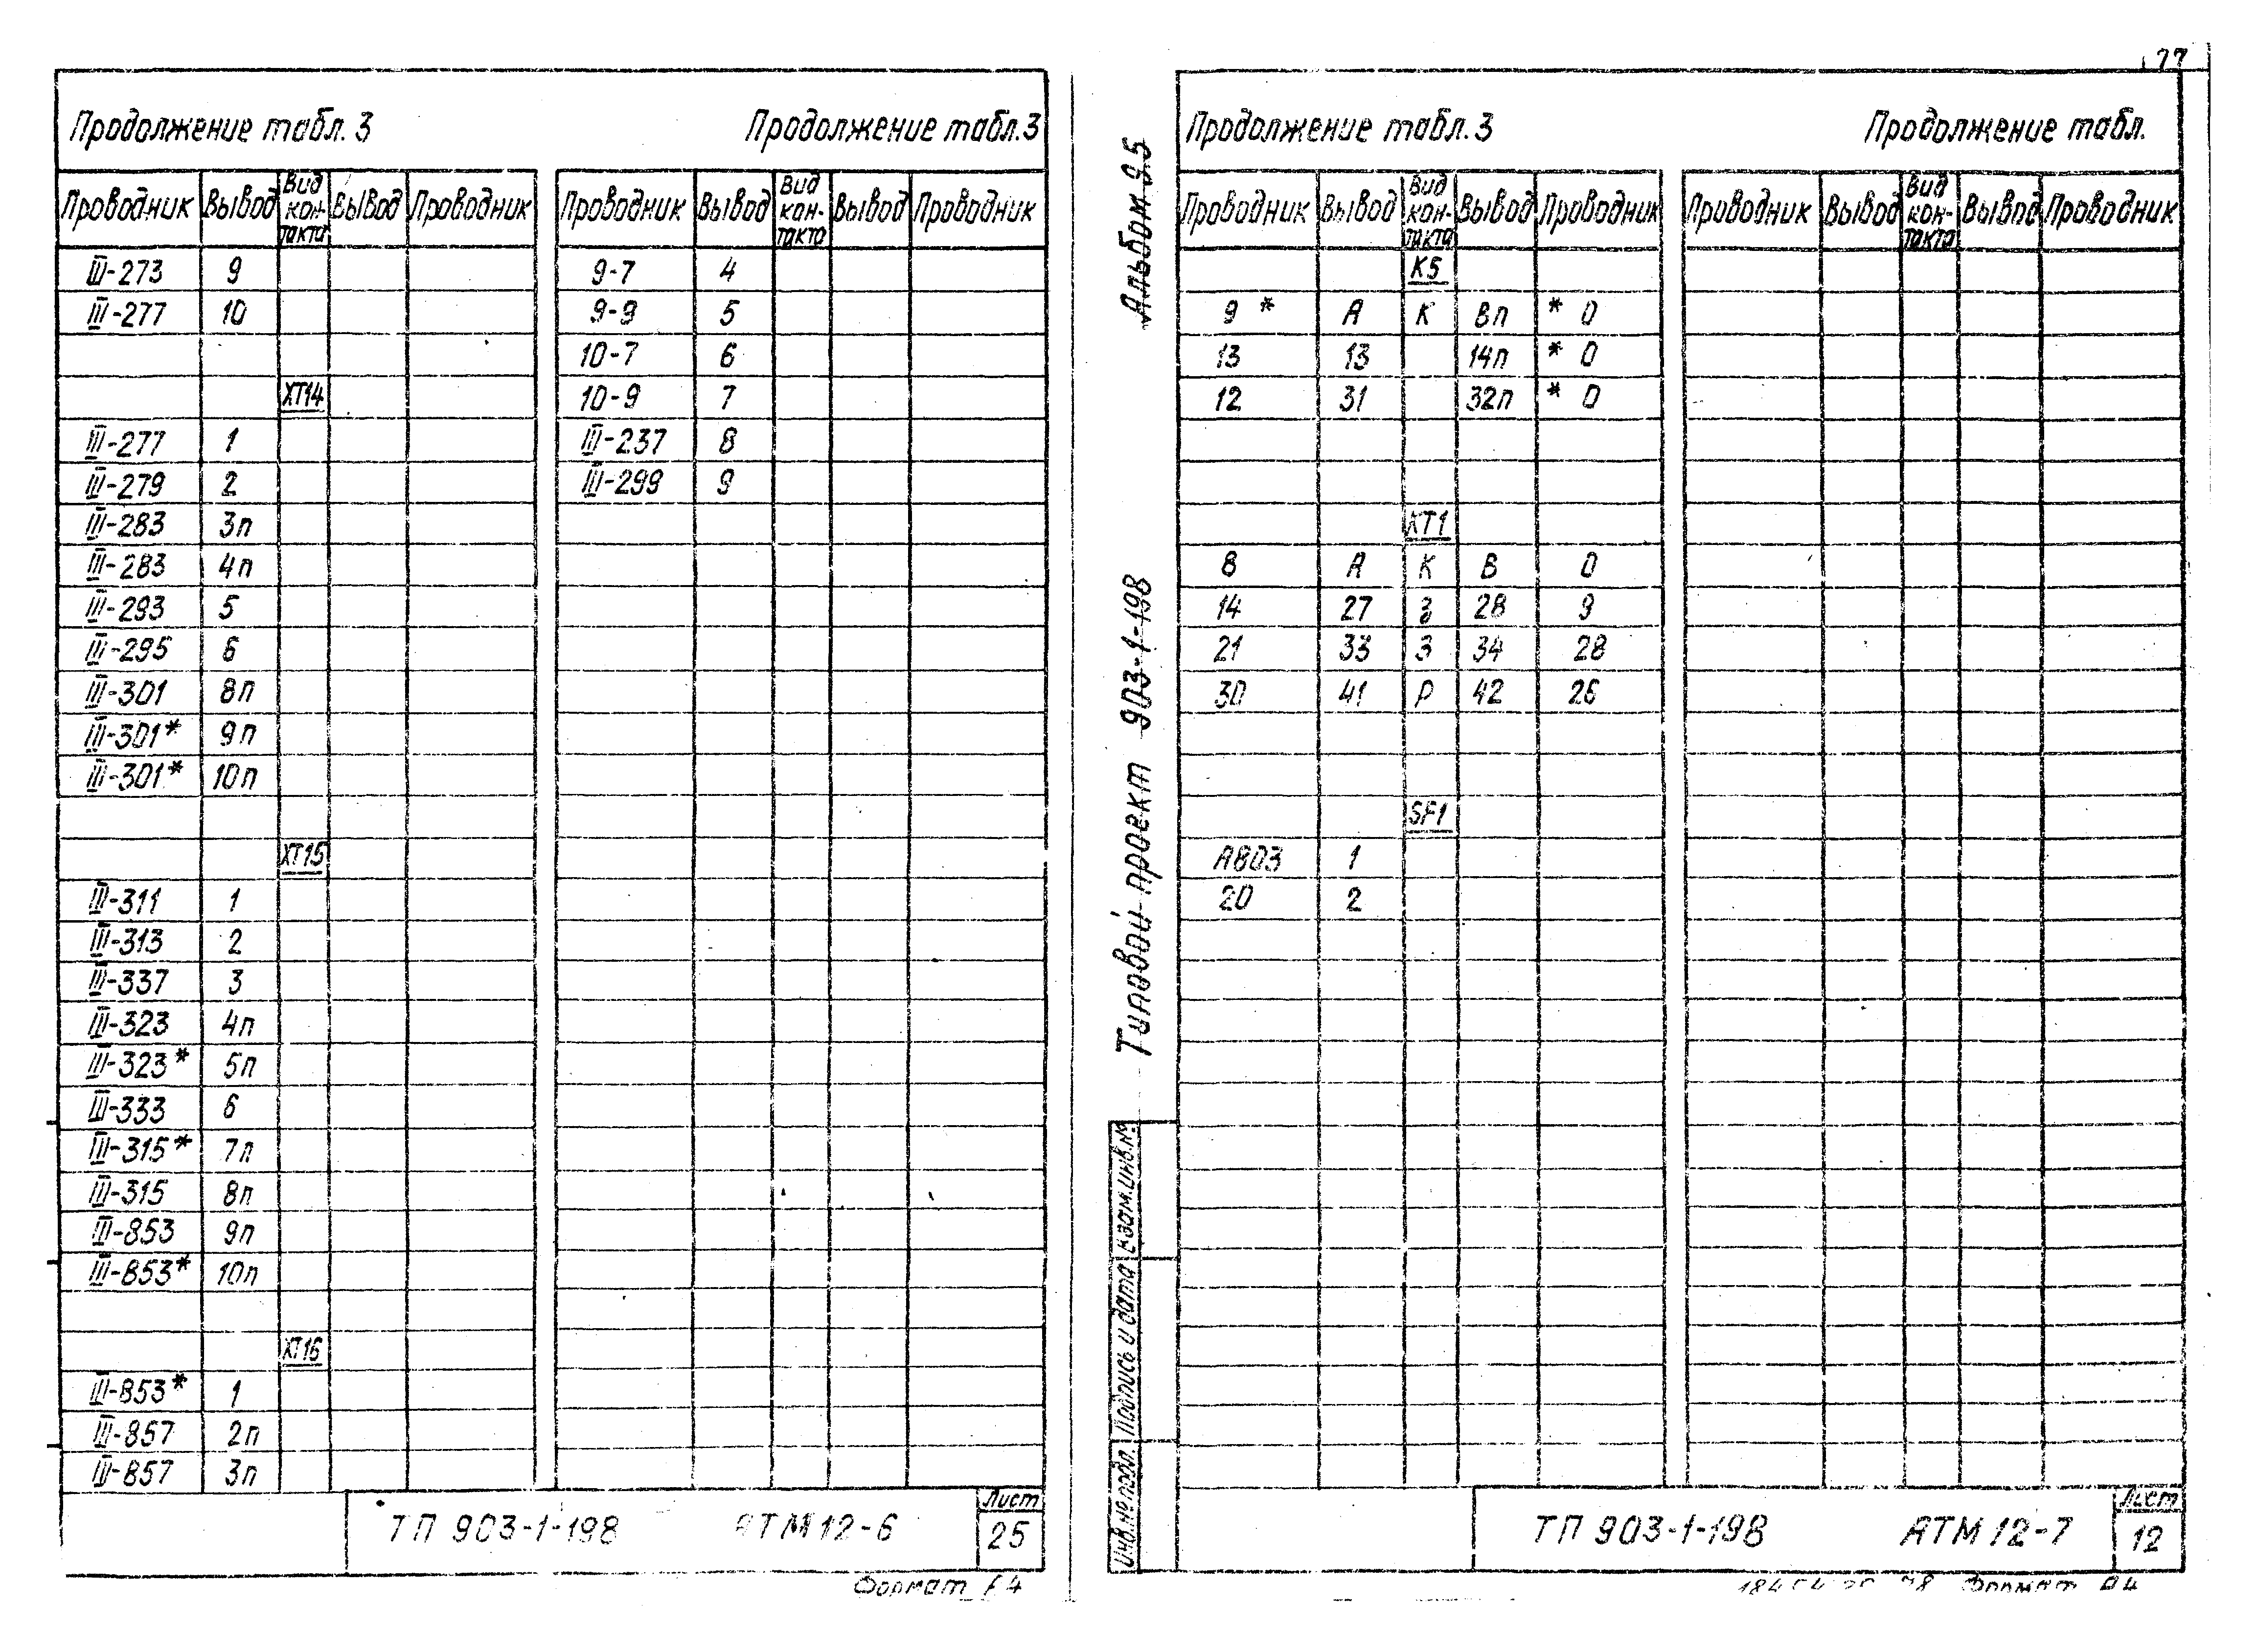 77
Продолжение табл. 3
Продолжение табл. 3
Проводник Вывод Вид контакта Вывод Проводник
Проводник Вывод Вид контакта Вывод Проводник
III-273 9
III-277 10
XT14
III-277 1
III-279 2
III-283 3п
III-283 4п
III-293 5
III-295 6
III-301 8п
III-301* 9п
III-301* 10п
XT15
III-311 1
III-313 2
III-337 3
III-323 4п
III-323* 5п
III-333 6
III-315* 7п
III-315 8п
III-853 9п
III-853* 10п
XT16
III-853* 1
III-857 2п
III-857 3п
9-7 4
9-9 5
10-7 6
10-9 7
III-237 8
III-299 9
ТП 903-1-198 АТМ12-6
Лист
25
Формат А4
Альбом 9.5
Типовой проект 903-1-198
Инв.№ подл. Подпись и дата Взам.инв.№
Продолжение табл. 3
Продолжение табл.
Проводник Вывод Вид контакта Вывод Проводник
Проводник Вывод Вид контакта Вывод Проводник
K5
9 * А К Вп * 0
13 13 14п * 0
12 31 32п * 0
KT1
8 А К В 0
14 27 З 28 9
21 33 З 34 28
30 41 Р 42 26
SF1
А803 1
20 2
ТП 903-1-198 АТМ12-7
Лист
12
Формат А4